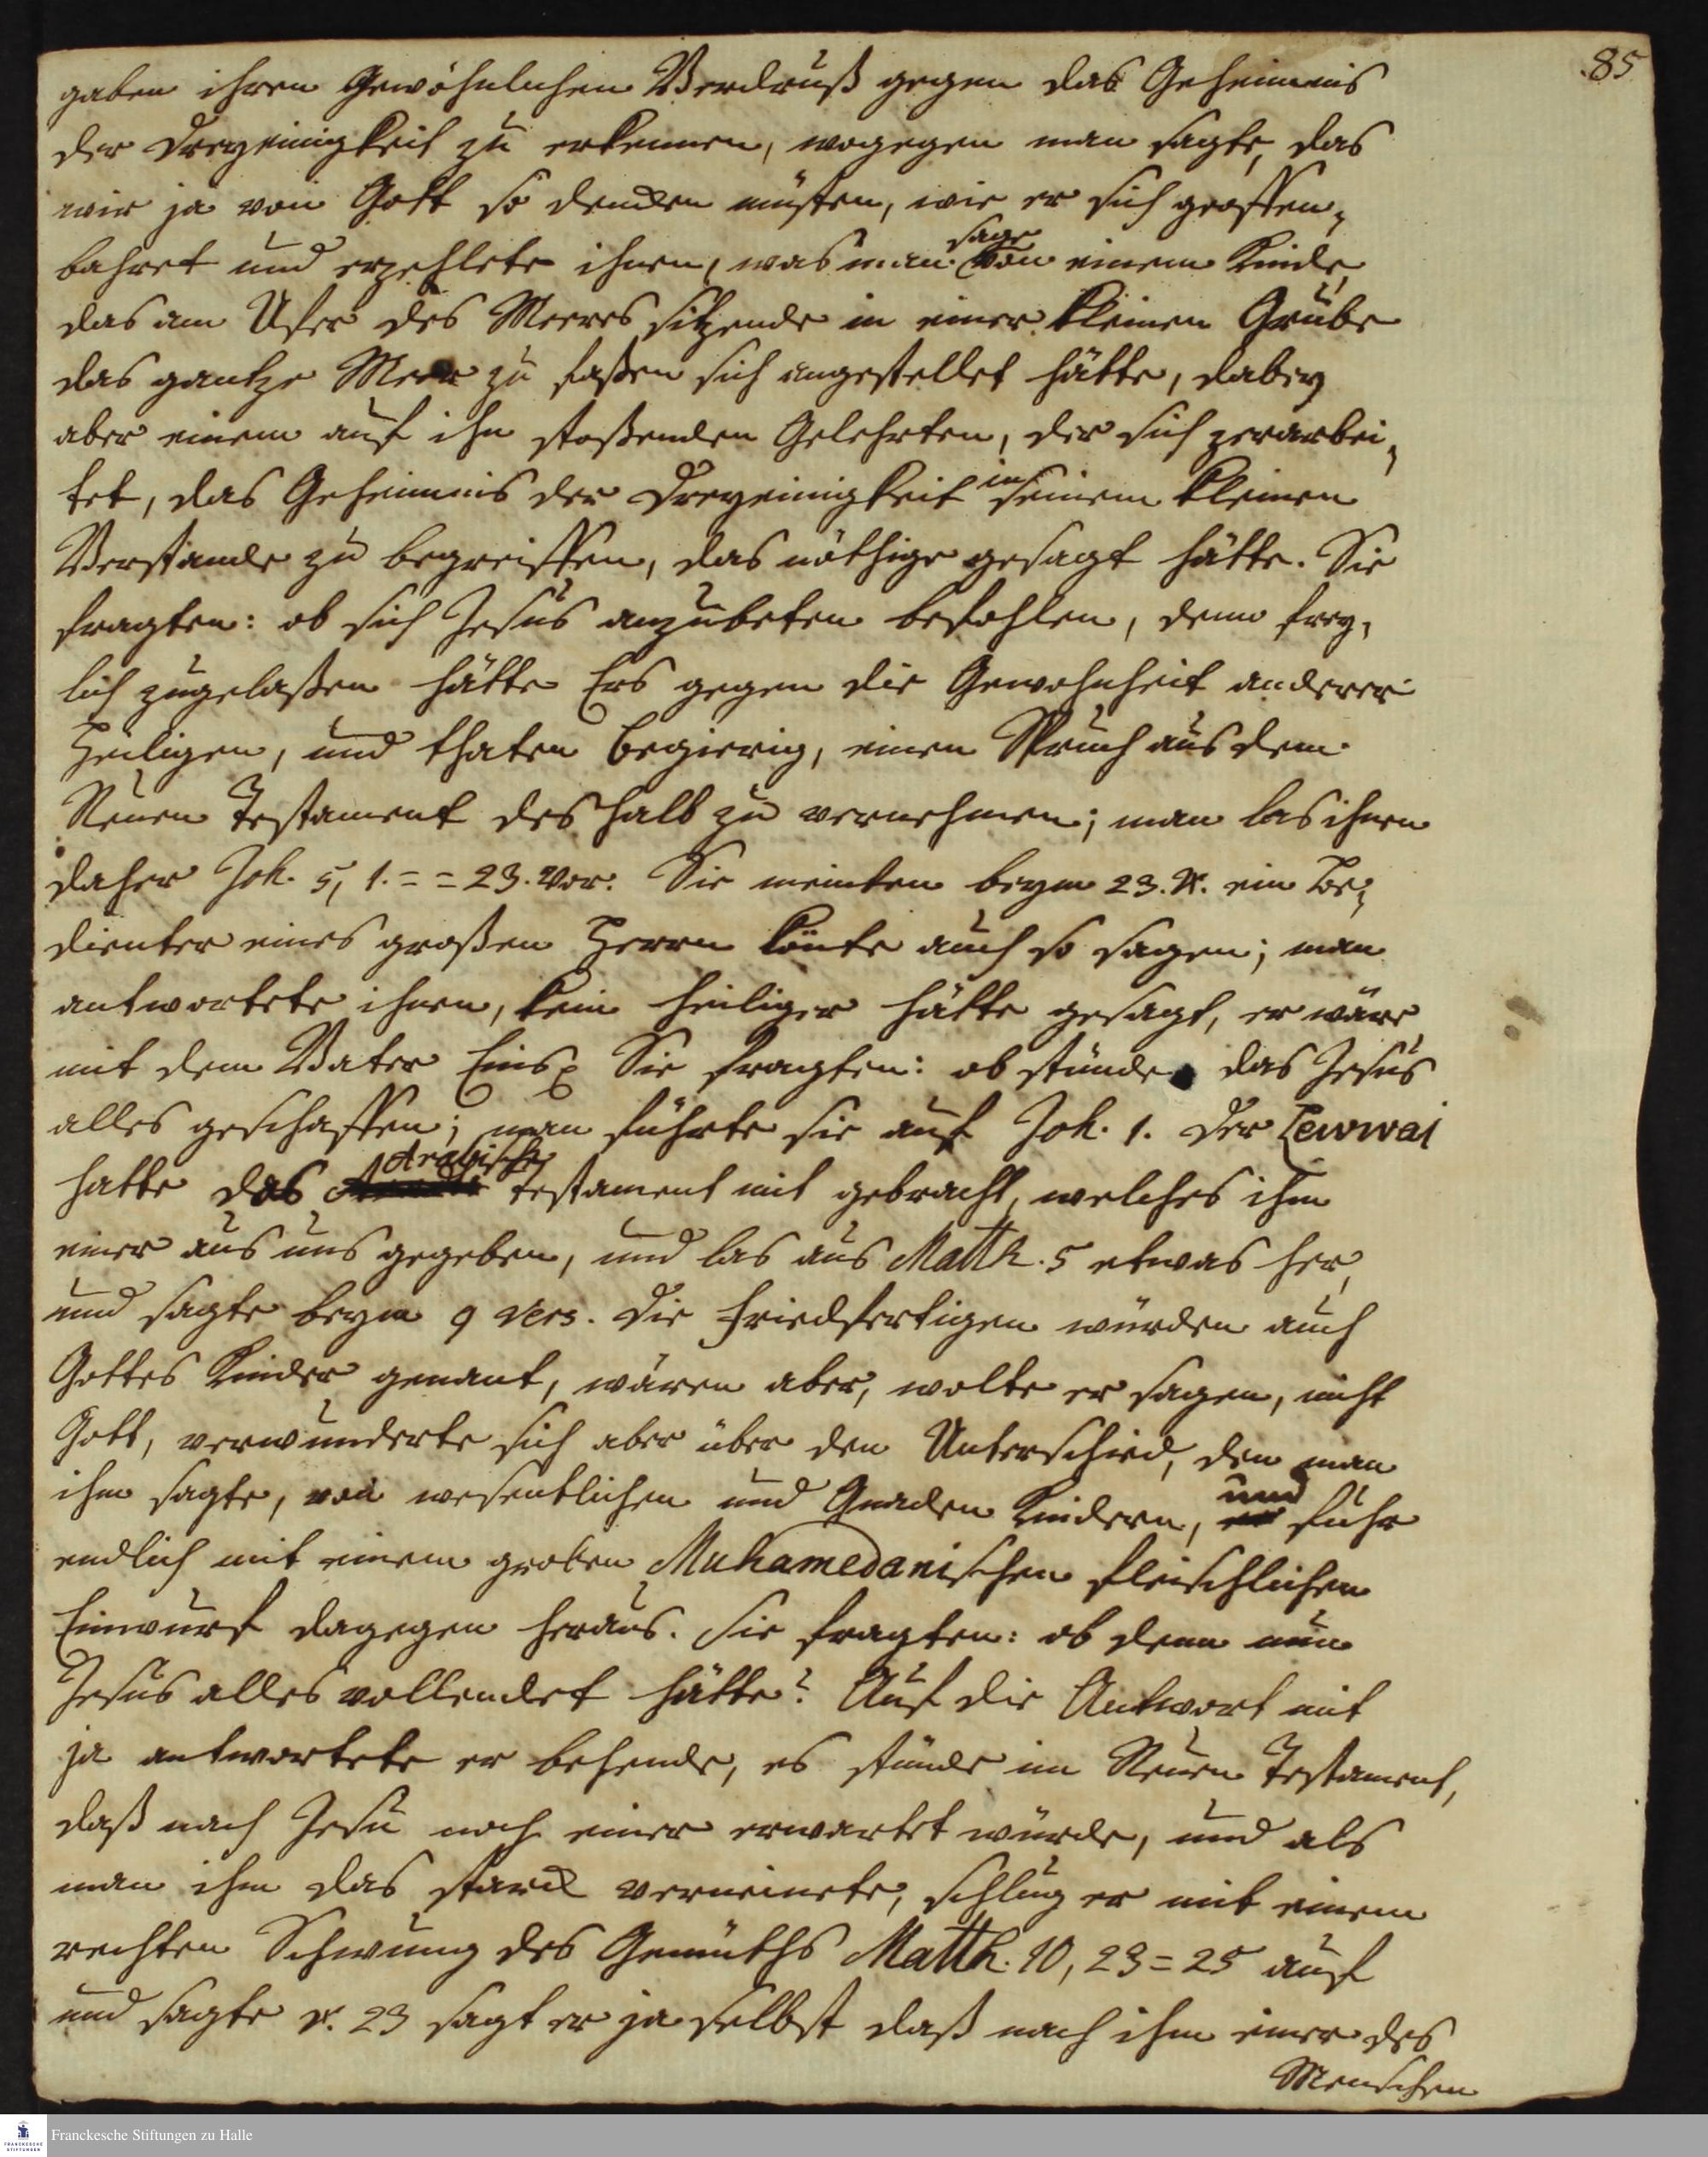 85
gaben ihren gewöhnlichen Verdruß gegen das Geheimnis
der Dreyeinigkeit zu erkennen, wogegen man sagte, das
wir ja von Gott so dencken müsten, wie er sich geoffen¬
bahret und erzehlete ihnen, was man sage von einem Kinde,
das am Ufer des Meeres sitzende in einer kleinen Grube
das gantze Meer zu faßen sich angestellet hätte, dabey
aber einem auf ihn stoßenden Gelehrten, der sich zerarbei¬
tet, das Geheimnis der Dreyeinigkeit in seinem kleinen
Verstande zu begreiffen, das nöthige gesagt hätte. Sie
fragten: ob sich Jesus anzubeten befohlen, denn frey¬
lich zugelaßen hätte Ers gegen die Gewohnheit anderer
Heiligen, und thaten begierig, einen Spruch aus dem
Neuen Testament deshalb zu vernehmen; man las ihnen
daher Joh. 5, 1. = = 23. vor. Sie meinten beym 23. V. ein Be¬
dienter eines großen Herrn könte auch so sagen; man
antwortete ihnen, kein heiliger hätte gesagt, er wäre
mit dem Vater Eins. Sie fragten: ob stünde das Jesus
alles geschaffen; man führte sie auf Joh. 1. Der Lewwai
hatte das Arabische Testament mit gebracht, welches ihm
einer aus uns gegeben, und las aus Matth. 5 etwas her,
und sagte beym 9 Vers. die Friedfertigen würden auch
Gottes Kinder genant, wären aber, wolte er sagen, nicht
Gott, verwunderte sich aber über den Unterschied, den man
ihm sagte, von wesentlichen und Gnaden Kindern, und fuhr
endlich mit einem groben Muhamedanischen fleischlichen
Einwurf dagegen heraus. Sie fragten: ob denn nun
Jesus alles vollendet hätte? Auf die Antwort mit
ja antwortete er behende, es stünde im Neuen Testament,
daß nach Jesu noch einer erwartet würde, und als
man ihm das starck verneinete, schlug er mit einem
rechten Schwung des Gemüths Matth. 10, 23 = 25 auf
und sagte v. 23 sagt er ja selbst daß nach ihm einer des
Menschen
Franckesche Stiftungen zu Halle